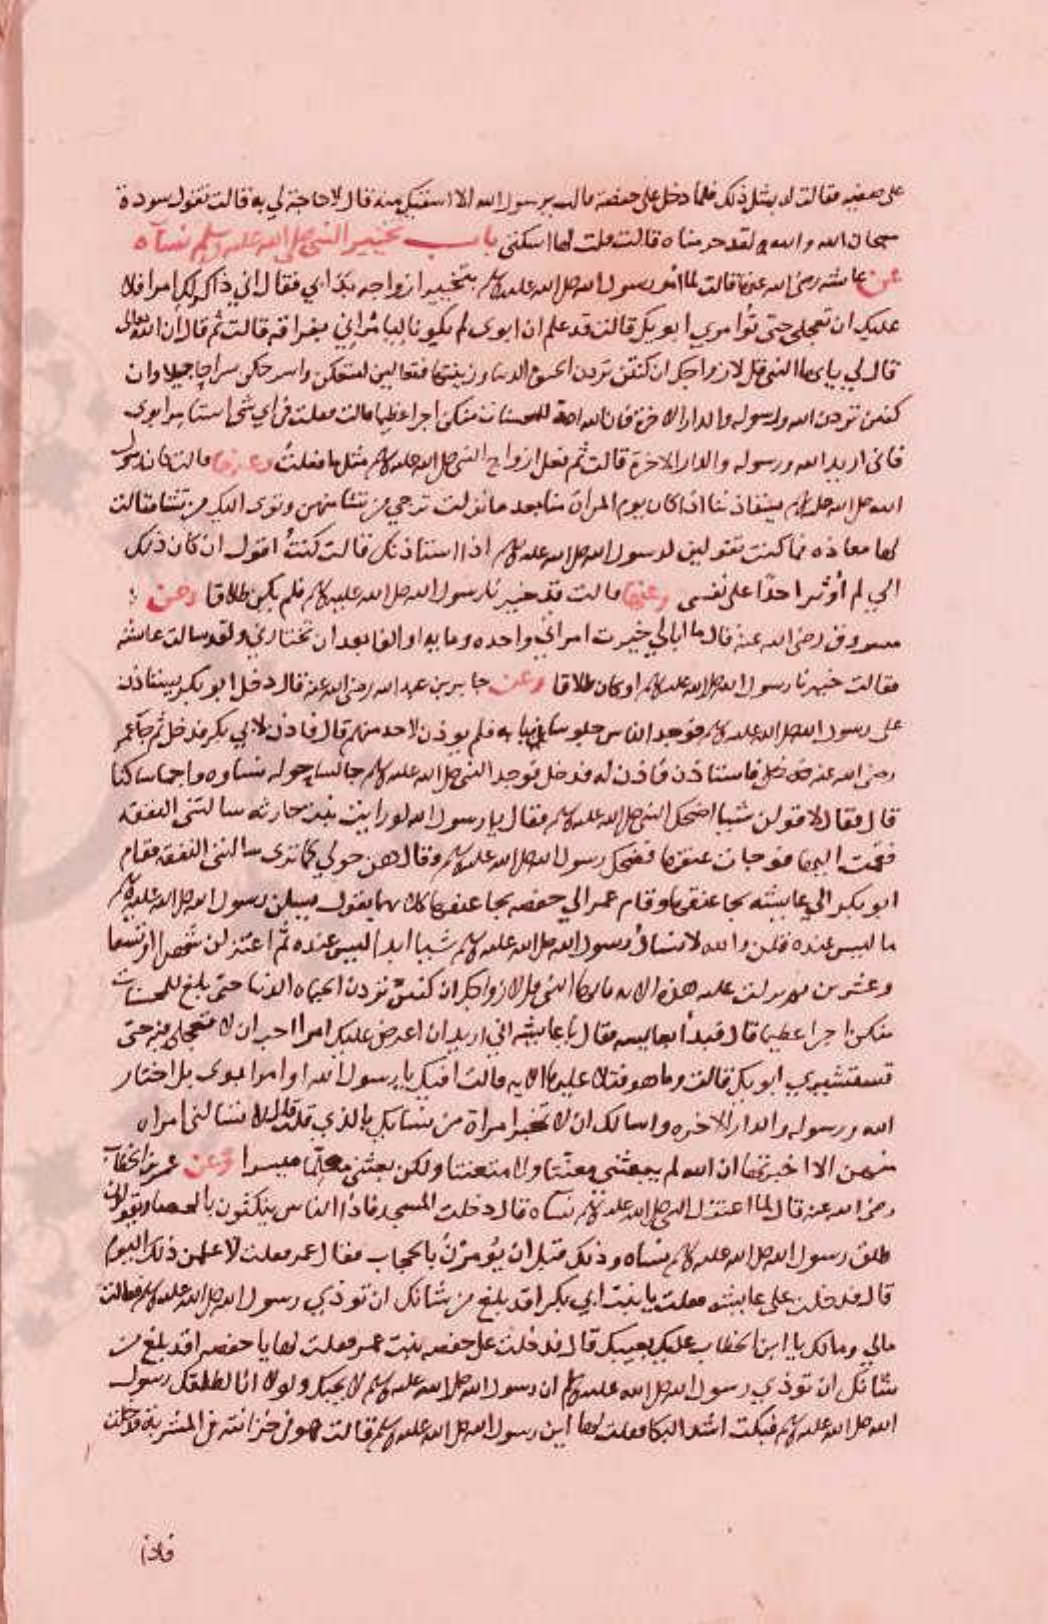 على صفيه فقالت له بمثل ذلك فلما دخل على حفصة قالت يرسول الله الا اسقيك منه قال لا حاجة لي به قالت تقول سودة
سبحان الله والله لقد حرمناه قالت قلت لها اسكتي باب تخيير النبي صلى الله عليه وسلم نسآه
عن عايشه رضى الله عنها قالت لما أمر رسول الله صلى الله عليه وسلم بتخيير ازواجه بدا بي فقال اني ذاكر لك امرا فلا
عليك ان تعجلي حتى توامري ابويك قالت قد علم ان ابوى لم يكونا ليامراني بفراقه قالت ثم قال ان الله تعالى
قال لي يايها النبي قل لازواجك ان كنتن تردن الحيوة الدنيا وزينتها فتعالين امتعكن واسرحكن سراحا جميلا وان
كنتن تردن الله ورسوله والدار الاخرة فان الله اعد للمحسنات منكن اجرا عظيما قالت فقلت في اي شى استامر ابوى
فانى اريد الله ورسوله والدار الاخرة قالت ثم فعل ازواج النبي صلى الله عليه وسلم مثل ما فعلت وعنها قالت كان رسول
الله صلى الله عليه وسلم يستاذننا اذا كان يوم المراة منا بعد ما نزلت ترجي من تشا منهن وتوى اليك من تشا فقالت
لها معاذه فما كنت تقولين لرسول الله صلى الله عليه وسلم اذا استاذنك قالت كنت اقول ان كان ذلك
الي لم أوثر احدا على نفسى وعنها قالت قد خيرنا رسول الله صلى الله عليه وسلم فلم يكن طلاقا وعن
مسروق رضى الله عنه قال ما ابالي خيرت امراتي واحده او مايه او الفا بعد ان تختارني ولقد سالت عايشه
فقالت خيرنا رسول الله صلى الله عليه وسلم او كان طلاقا وعن جابر بن عبد الله رضى الله عنه قال دخل ابو بكر يستاذن
على رسول الله صلى الله عليه وسلم فوجد الناس جلوسا ببابه فلم يوذن لاحد منهم قال فاذن لابي بكر فدخل ثم جآ عمر
رضى الله عنه فاستاذن فاذن له فدخل فوجد النبي صلى الله عليه وسلم جالسا حوله نساوه واجما ساكتا
قال فقال لاقولن شيا اضحك النبي صلى الله عليه وسلم فقال يا رسول الله لو رايت بنت خارجه سالتني النفقه
فقمت اليها فوجات عنقها فضحك رسول الله صلى الله عليه وسلم وقال هن حولي كما ترى سالنني النفقه فقام
ابو بكر الي عايشه يجا عنقها وقام عمر الي حفصه يجا عنقها كلاهما يقول تسالن رسول الله صلى الله عليه وسلم
ما ليس عنده فقلن والله لا نسال رسول الله صلى الله عليه وسلم شيا ابدا ليس عنده ثم اعتزلهن شهرا او تسعا
وعشرين ثم نزلت عليه هذه الايه يايها النبي قل لازواجك ان كنتن تردن الحياه الدنيا حتى بلغ للمحسنات
منكن اجرا عظيما قال فبدا بعايشه فقال يا عايشه اني اريد ان اعرض عليك امرا احب ان لا تعجلي فيه حتى
تستشيري ابويك قالت وما هو فتلا عليها الايه قالت افيك يا رسول الله اوامر ابوى بل اختار
الله ورسوله والدار الاخره واسالك ان لا تخبر امراة من نسايك بالذي قلت قال لا تسالني امراه
منهن الا اخبرتها ان الله لم يبعثني معنتا ولا متعنتا ولكن بعثني معلما ميسرا وعن عمر بن الخطاب
رضى الله عنه قال لما اعتزل النبي صلى الله عليه وسلم نساه قال دخلت المسجد فاذا الناس ينكثون بالحصا ويقولون
طلق رسول الله صلى الله عليه وسلم نساه وذلك قبل ان يؤمرن بالحجاب فقال عمر فقلت لاعلمن ذلك اليوم
قال فدخلت على عايشه فقلت يا بنت ابي بكر اقد بلغ من شانك ان توذي رسول الله صلى الله عليه وسلم فقالت
مالي ومالك يا ابن الخطاب عليك بعيبتك قال فدخلت على حفصه بنت عمر فقلت لها يا حفصه اقد بلغ من
شانك ان توذي رسول الله صلى الله عليه وسلم ان رسول الله صلى الله عليه وسلم لا يحبك ولولا انا لطلقك رسول
الله صلى الله عليه وسلم فبكت اشد البكا فقلت لها اين رسول الله صلى الله عليه وسلم قالت هو في خزانته في المشربة فدخلت
فاذا